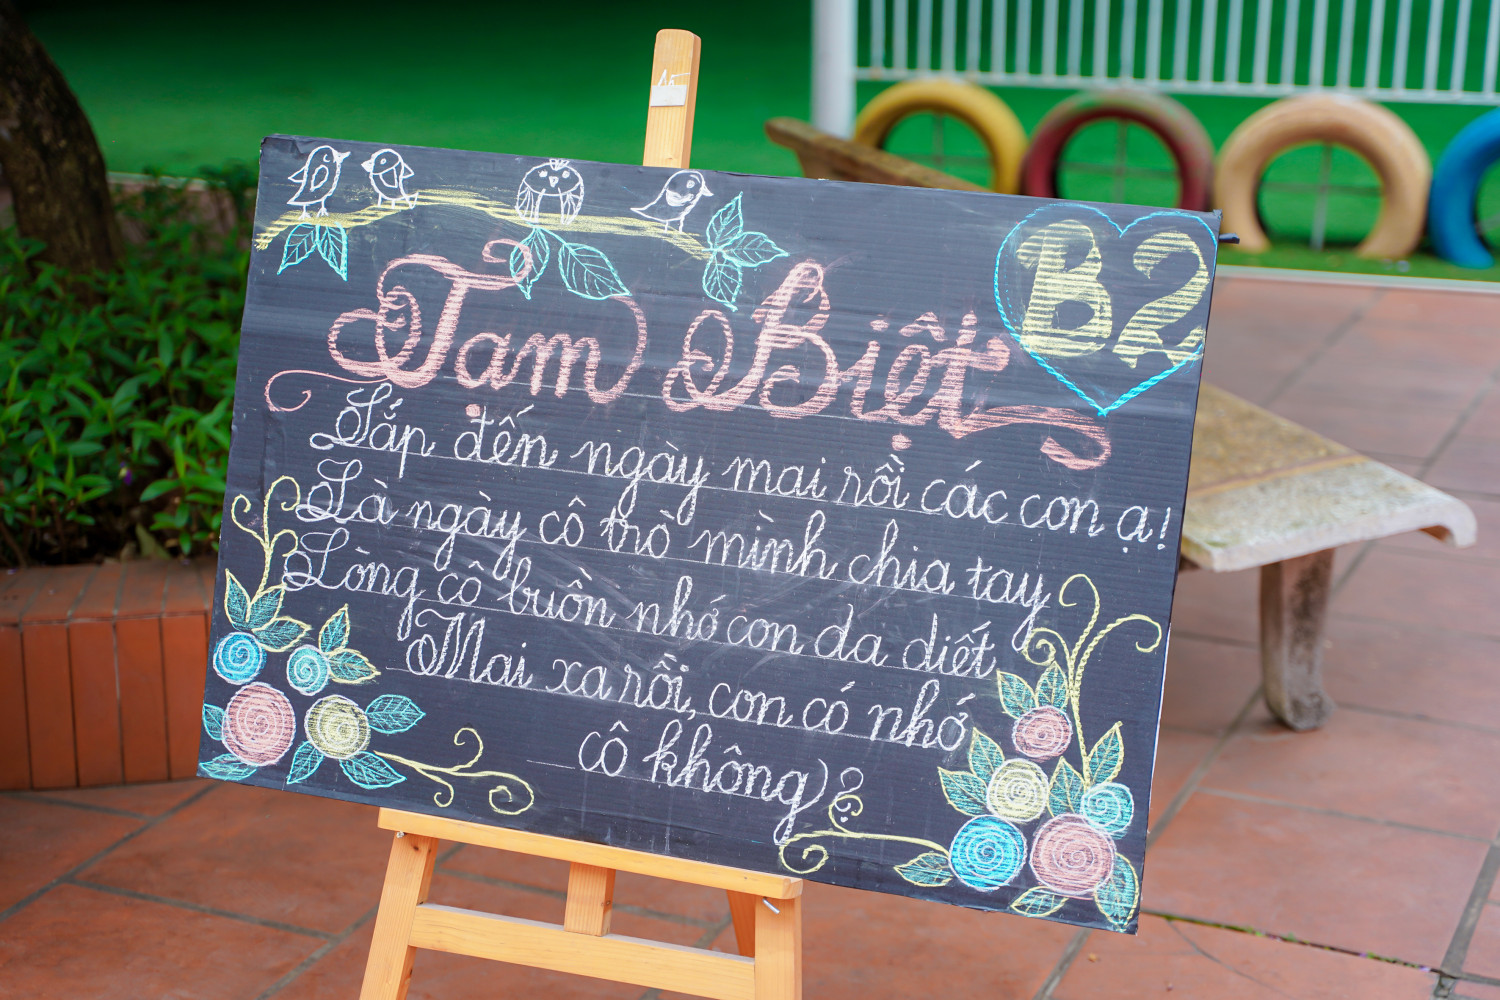 15
B2
Tạm Biệt
Sắp đến ngày mai rồi các con ạ!
Là ngày cô trò mình chia tay
Lòng cô buồn nhớ con da diết
Mai xa rồi, con có nhớ
cô không)?